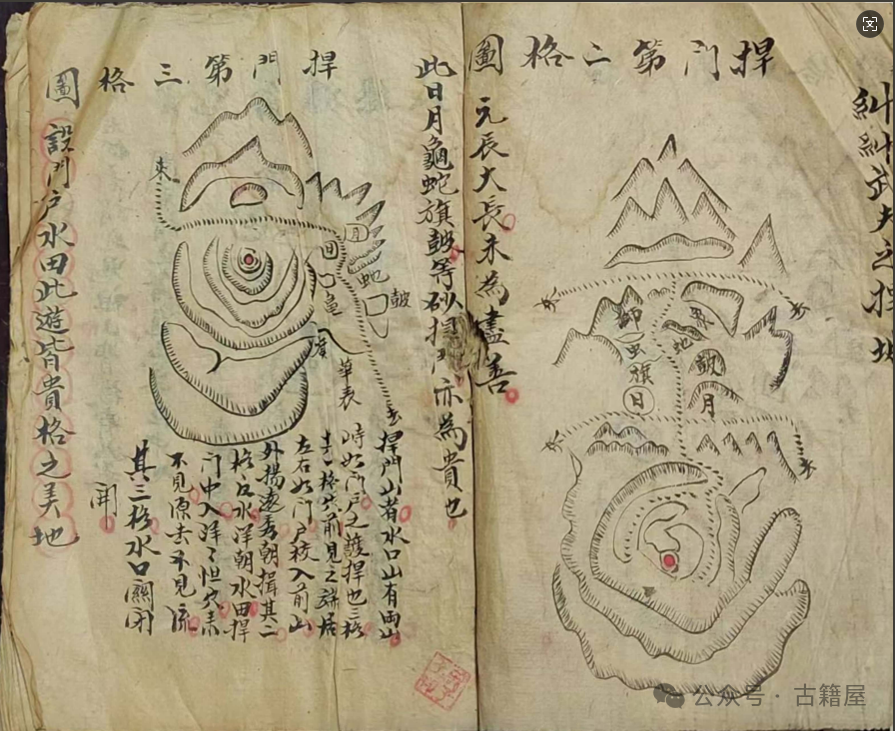 糾糾武夫之捍城
捍門第二格圖
去
去
獅
虫
旗
日
龜
蛇
鼓
月
去
去
元長大長未為盡善
此日月龜蛇旗鼓等砂捍門亦為貴也
捍門第三格圖
來
月
蛇
鼓
日
龜
華表
去
捍門山者水口山有兩山
峙如門戶之護捍也三格
去一格皆前見之
左右如門戶格入前山
外揚遠秀朝揖其二
格反水洋朝水田捍
門中入洋洋
不見源去不見流
其三格水口關閉
開
設門戶水田此遊皆貴格之美地
公众号·古籍屋